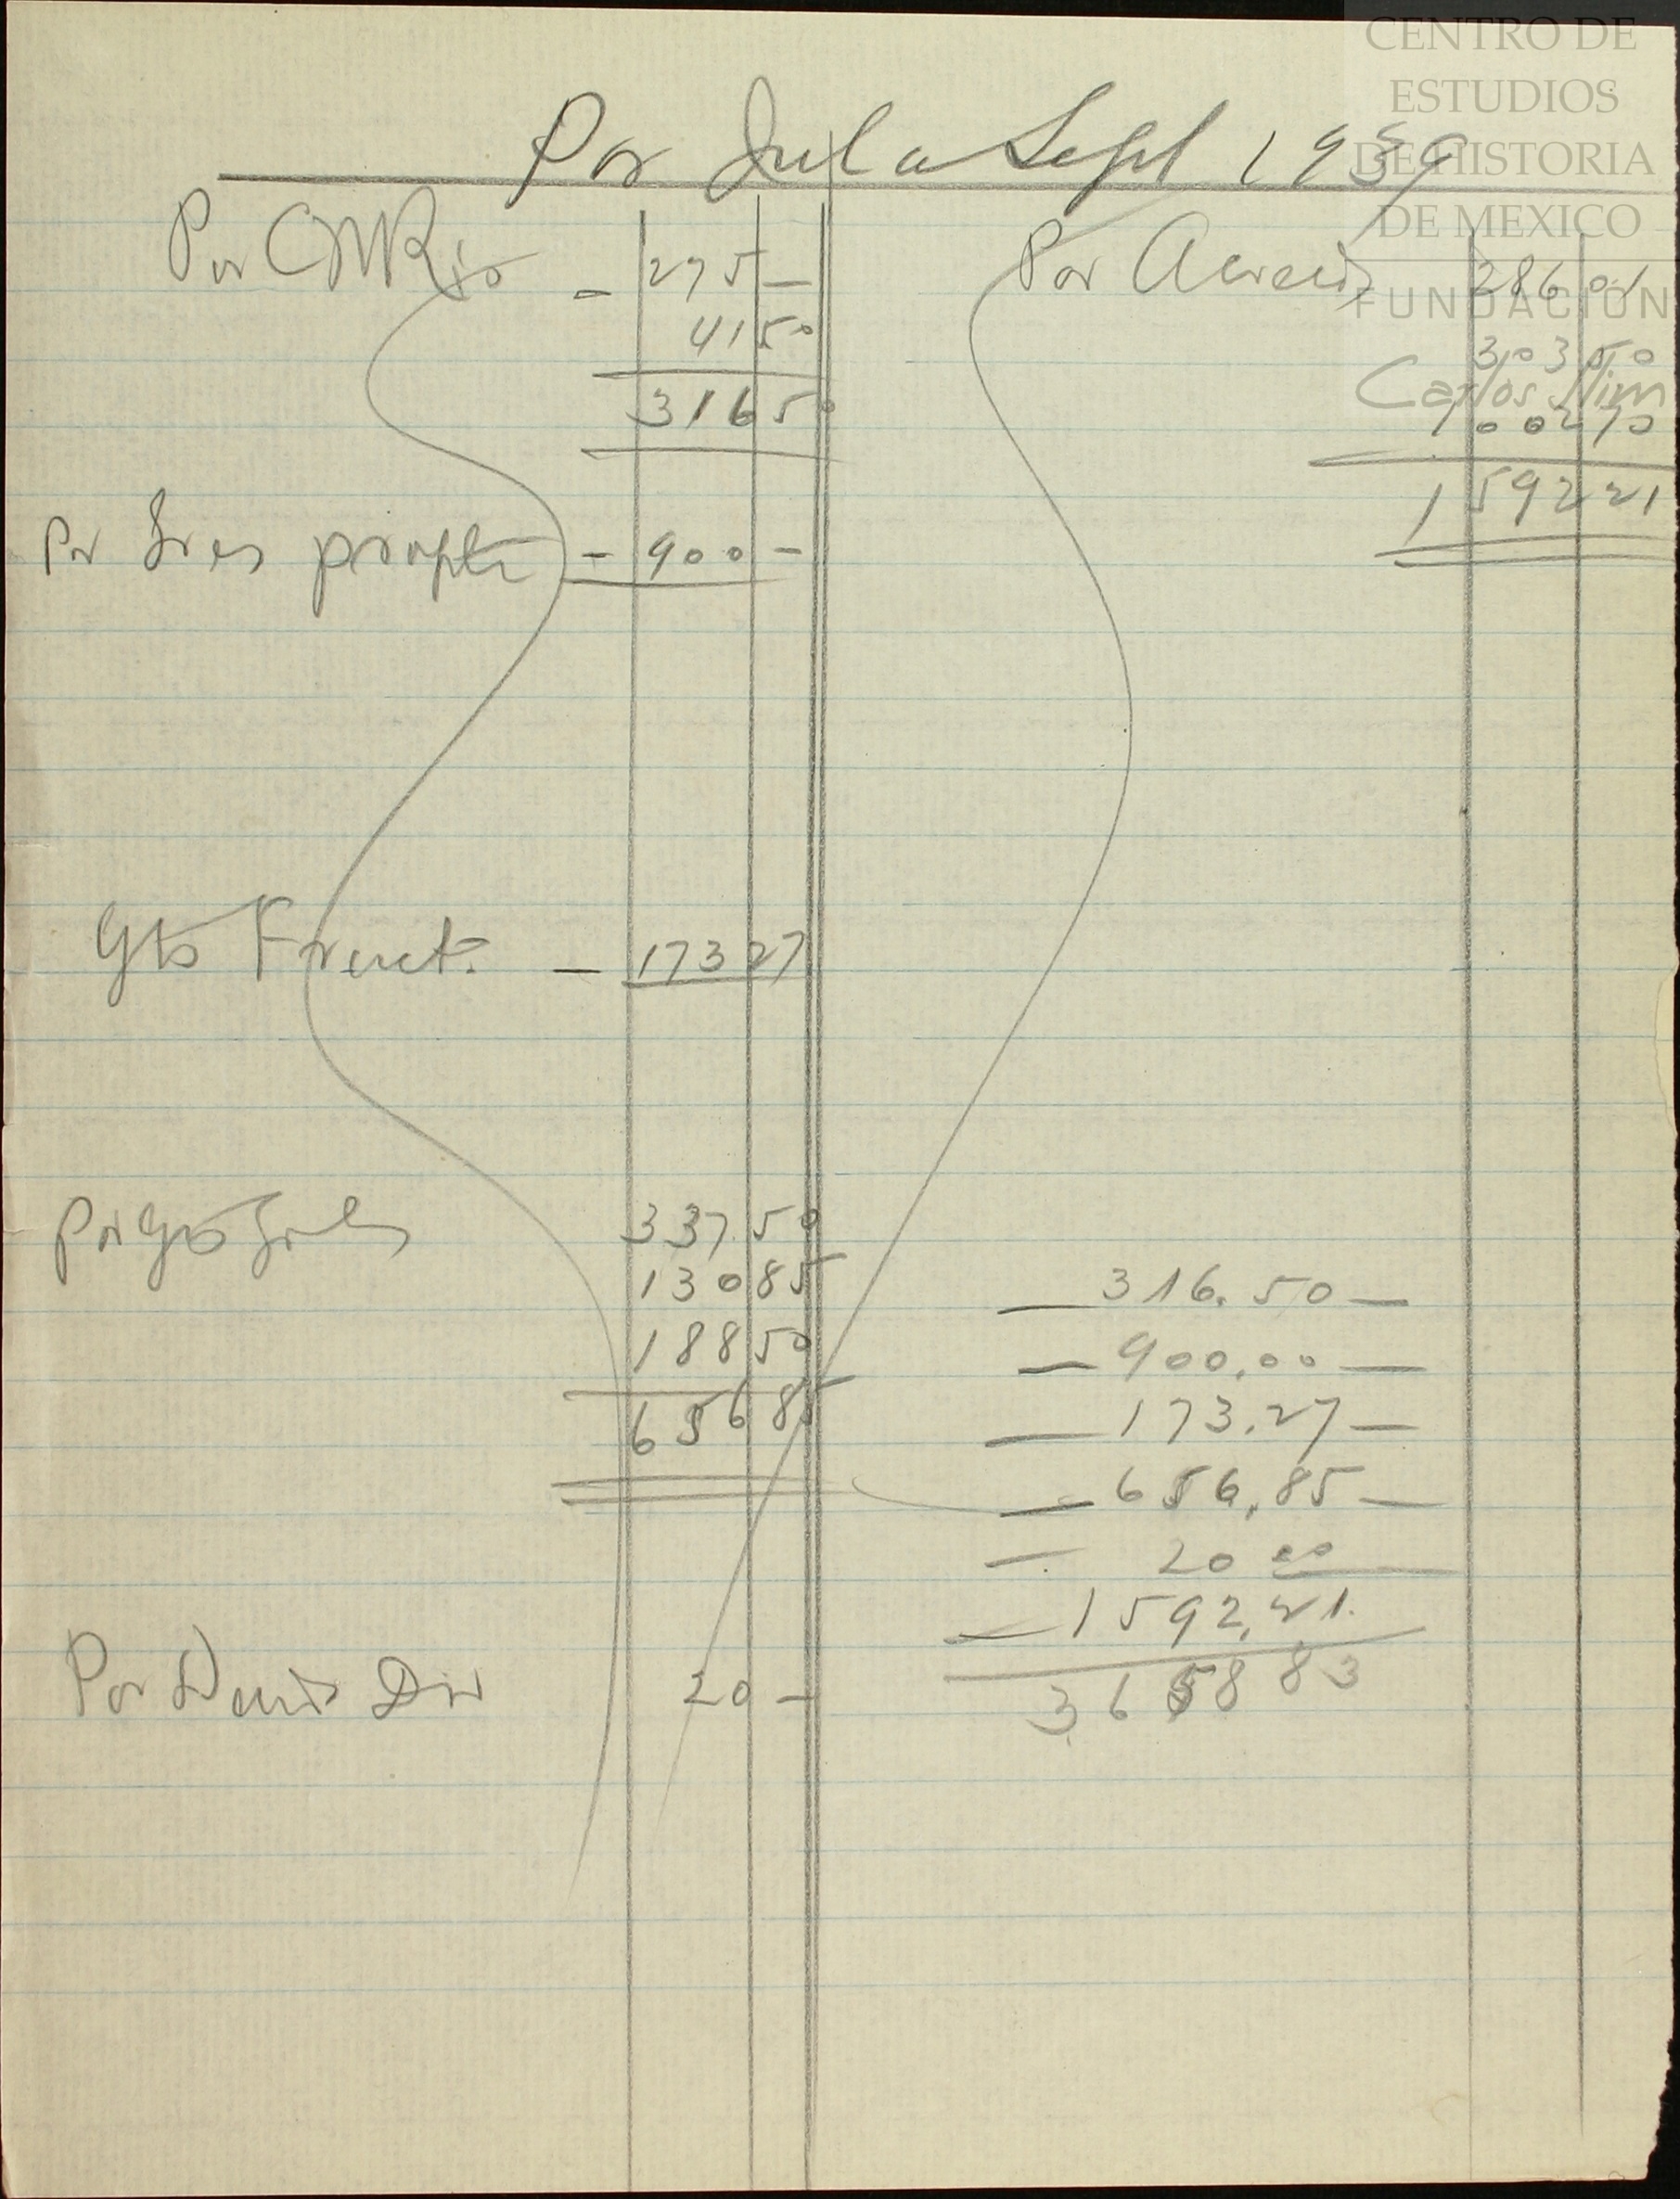 CENTRO DE
ESTUDIOS
DE HISTORIA
DE MEXICO
FUNDACIÓN
Carlos Slim
Por Jul a Sept 193
Por CMR
- 275 -
41 50
316 50
Por Sres propts - 900 -
Gto Fruct. - 173 27
Por Gts Grles 337.50
130 85
188 50
656 85
Por Deuds Div 20 -
Por Acreeds 286 01
303 50
1002 70
1592 21
316.50
900.00
173.27
656.85
20 00
1592.21
3658 83